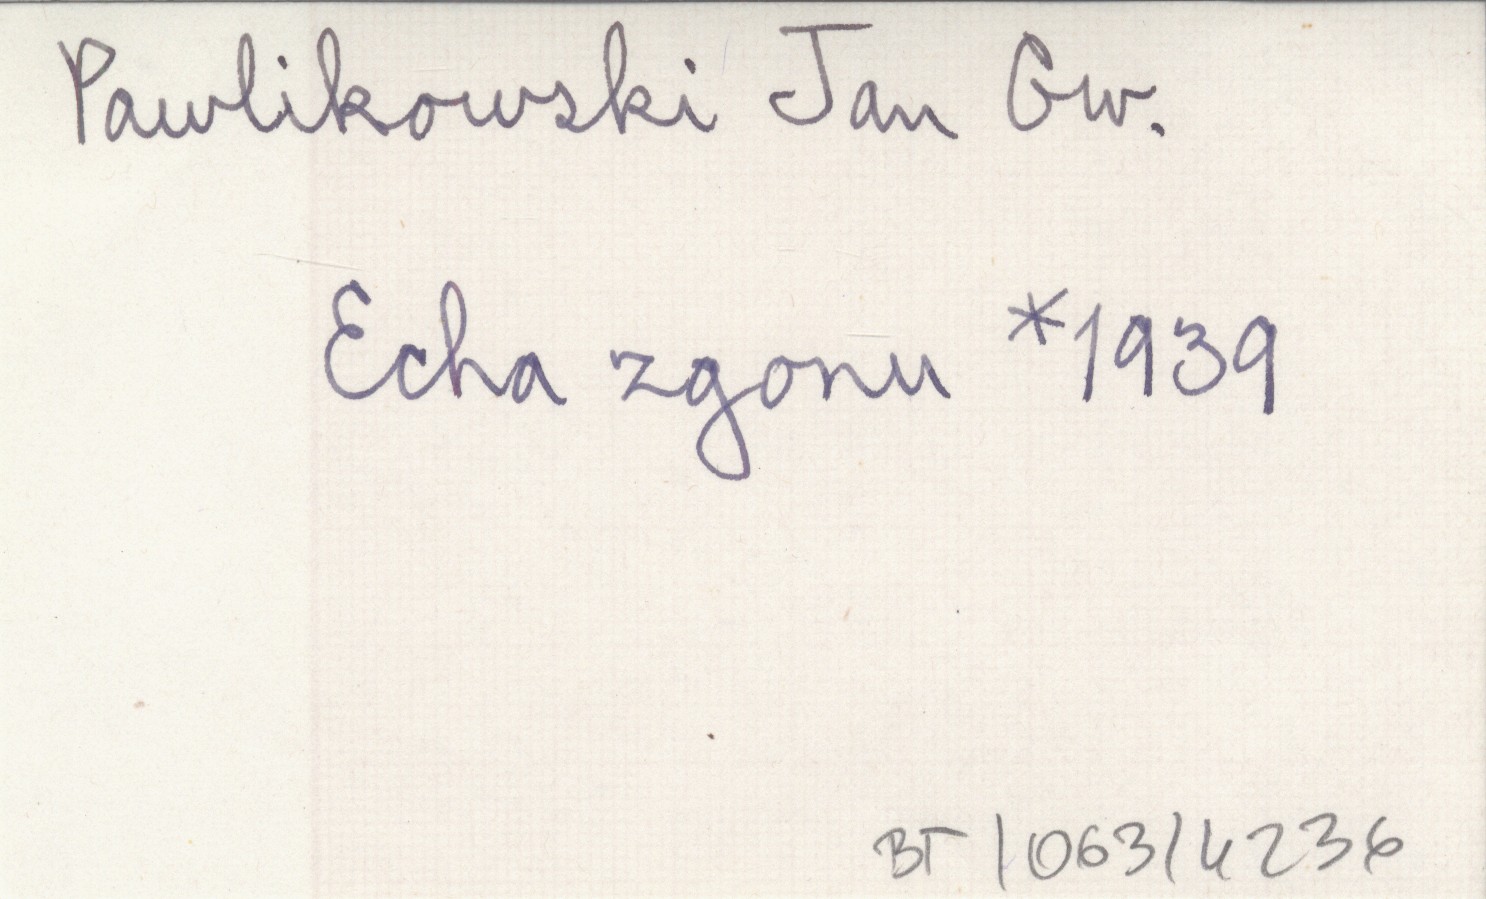 Pawlikowski Jan Gw.
Echa zgonu *1939
BT/063/4236